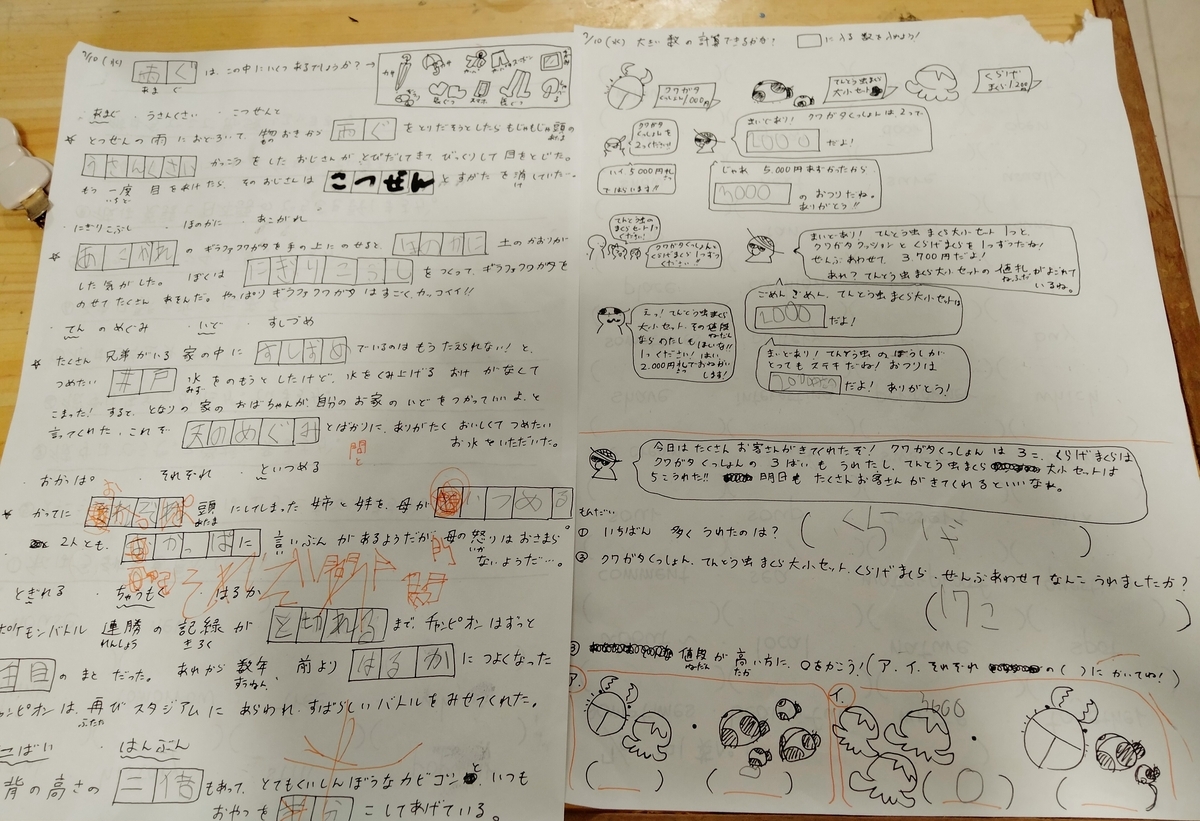 7/10 (水)
雨ぐ は、この中にいくつあるでしょうか?→
あま ぐ
・あまぐ ・うさんくさい ・こつぜんと
★ とつぜんの雨におどろいて、物おきから 雨ぐ をとりだそうとしたらもじゃもじゃ頭の
うさんくさい かっこうをしたおじさんがとびだしてきて、びっくりして目をとじた。
もう一度目をあけたら、そのおじさんは こつぜん とすがたを消していた…。
・にぎりこぶし ・ほのかに ・あこがれ
★ あこがれ のギラファクワガタを手の上にのせると、ほのかに 土のかおりが
した気がした。ぼくは にぎりこぶし をつくって、ギラファクワガタを
のせてたくさんあそんだ。やっぱりギラファクワガタはすごく、カッコイイ!!
・てんのめぐみ ・いど ・すしづめ
★ たくさん兄弟がいる家の中に すしずめ でいるのはもうたえられない!と、
つめたい 井戸 水をのもうとしたけど、水をくみ上げるおけがなくて
こまった!すると、となりの家のおばちゃんが自分のお家のいどをつかっていいよ、と
言ってくれた。これぞ 天のめぐみ とばかりに、ありがたくおいしくてつめたい
お水をいただいた。
・おかっぱ ・それぞれ ・といつめる
★ かってに 頭にしてしまった姉と妹を、母が いつめる。
2人とも、かっぱに 言いぶんがあるようだが、母の怒りはおさまら
ないようだ…。
とぎれる ・ちゅうもく ・はるか
ポケモンバトル連勝の記録が と切れる まで、チャンピオンはずっと
目 のまとだった。あれから数年、前より はるか につよくなった
ンピオンは、再びスタジアムにあらわれ、すばらしいバトルをみせてくれた。
こばい ・はんぶん
背の高さの 二倍 もあって、とてもくいしんぼうなカビゴンと、いつも
おやつを こしてあげている。
7/10 (水) 大きい数の計算できるかな? □に入る数を入れよう!
クワガタくっしょん 1000円
てんとう虫まくら大小セット
くらげまくら 1200円
クワガタくっしょんを2つください!
まいどあり! クワガタくっしょんは2つで
2000 だよ!
ハイ 5000円札ではらいます!!
じゃあ 5.000円あずかったから
3000 のおつりだね。
ありがとう!!
てんとう虫のまくらセット1つください!
クワガタくっしょんとくらげまくら1つずつください!!
まいどあり! てんとう虫まくら大小セット1つと、
クワガタクッションとくらげまくらを1つずつだね!
ぜんぶあわせて 3.700円だよ!
あれ? てんとう虫まくら大小セットの値札がよごれているね。
ごめんごめん、てんとう虫まくら大小セットは
だよ!
えっ! てんとう虫まくら大小セット、その値段ならわたしもほしいな!!
1つください! はい、2.000円札でおねがいします!
まいどあり! てんとう虫のぼうしが
とってもステキだね! おつりは
だよ! ありがとう!
今日はたくさんお客さんがきてくれたぞ! クワガタくっしょんは3こ、くらげまくらは
クワガタくっしょんの3ばいもうれたし、てんとう虫まくら大小セットは
5こうれた!! 明日もたくさんお客さんがきてくれるといいなぁ。
もんだい
① いちばん多くうれたのは? ( くらげ )
② クワガタくっしょん、てんとう虫まくら大小セット、くらげまくら、ぜんぶあわせてなんこうれましたか?
(17こ )
③ 値段が高い方に、○をかこう!(ア、イ、それぞれの( )にかいてね!)
ア. イ.
( ) ( ) ( ○ )